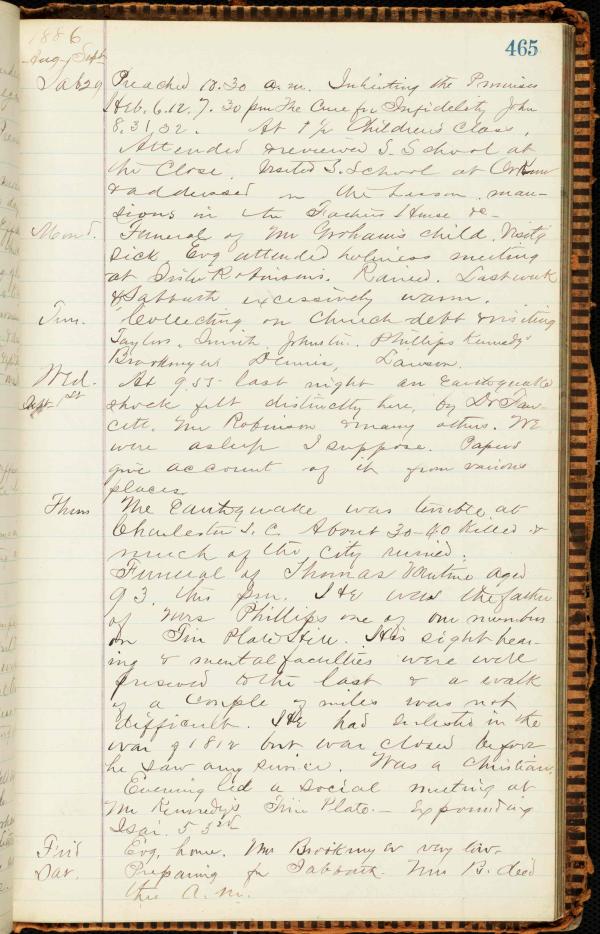 1886
465
Aug & Sept
Sab 29 Preached 10.30 a.m. Inheriting the Promises
Heb. 6.12. 7.30 pm The Cure for Infidelity John
8.31,32. At Childrens Class.
Attended & reviewed S. School at
the Close. Visited S. School at
& addressed on the Lesson man-
sions in the Fathers House &c-
Mond. Funeral of Mr Grohams child. Visit'g
sick. Evg attended holiness meeting
at Sister Robinsons. Rained. Last week
& Sabbath excessively warm.
Tues. Collecting on Church debt & visiting
Taylors, Smith, Johnston, Phillips Kennedys
Brookmyer Dennis, Lawson.
Wed. At 9.55 last night an Earthquake
Sept 1st shock felt distinctly here, by Dr Faw-
cett, Mr Robinson & many others. We
were asleep I suppose. Papers
give account of it from various
places.
Thurs The Earthquake was terrible at
Charleston S.C. About 30-40 killed &
much of the city ruined.
Funeral of Thomas aged
93 this pm. He was the father
of Mrs Phillips one of our members
on Tim Plato Hill. His sight hear-
ing & mental faculties were well
preserved to the last & a walk
of a couple of miles was not
difficult. He had enlisted in the
war of 1812 but war closed before
he saw any service. Was a christian.
Evening led a social meeting at
Mr Kennedy's Tim Plato. - Expounding
Isai. 53rd
Frid Evg. home. Mr Brookmyer very low.
Sat. Preparing for Sabbath. Mr B. died
this A.M.